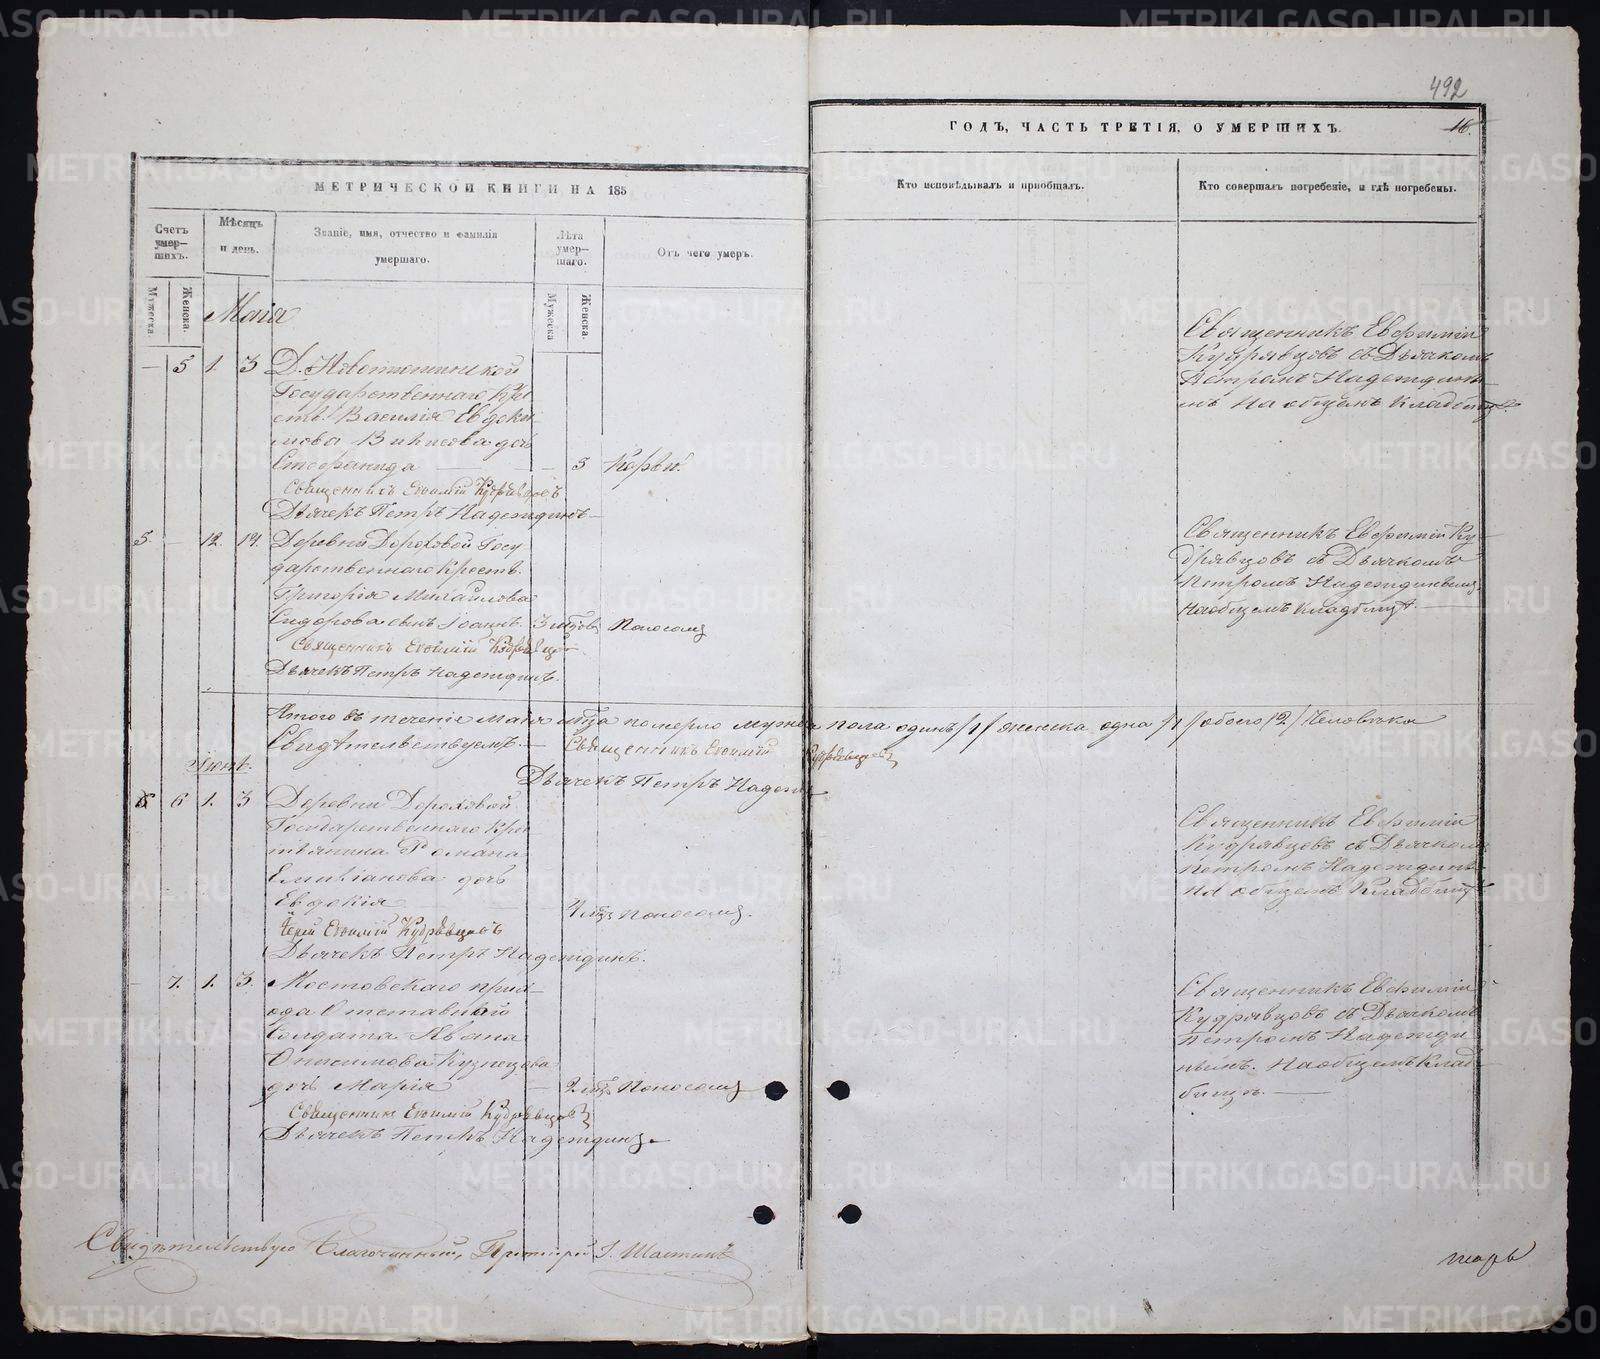 492
МЕТРИЧЕСКОЙ КНИГИ НА 185
ГОДЪ, ЧАСТЬ ТРЕТІЯ, О УМЕРШИХЪ.
16.
Счетъ умер-шихъ.
Мужеска.
Женска.
Мѣсяцъ и день.
Званіе, имя, отчество и фамилія умершаго.
Лѣта умер-шаго.
Мужеска
Женска.
Отъ чего умеръ.
Кто исповѣдывалъ и пріобщалъ.
Кто совершалъ погребеніе, и гдѣ погребены.
Маія
— 5 1. 3
Государственнаго Кре
ст. Василія Евдоки
мова дочь
Стефанида — 5 Корью.
Священникъ Евѳимій Кудрявцовъ
Дьячекъ Петръ Надеждинъ
Священникъ Евфимій
Кудрявцовъ съ Дьячкомъ
Петромъ Надеждин
мъ на общемъ кладбищѣ
5. — 12. 14. Деревни Дороховой Госу
дарственнаго Крест.
Григорія Михайлова
Сидорова сынъ Іоаннъ. 3 мѣсяц Поносомъ
Священникъ Евѳимій Кудрявцовъ
Дьячекъ Петръ Надеждинъ.
Священникъ Евфимій Ку
дрявцовъ съ Дьячкомъ
Петромъ Надеждинымъ
на общемъ кладбищѣ.
Итого въ теченіе Маія мѣсяца померло мужеска пола одинъ /1/ женска одна /1/ обоего /2/ человѣка
Свидѣтельствуемъ. — Священникъ Евѳимій Кудрявцовъ
Дьячекъ Петръ Надежд
Іюнь.
6 1. 3 Деревни Дороховой
Государственнаго Кре
стьянина Романа
Емиліанова дочь
Евдокія 4 мѣс Поносомъ.
Іерей Евѳимій Кудрявцовъ
Дьячекъ Петръ Надеждинъ.
Священникъ Евфимій
Кудрявцовъ съ Дьячком
Петромъ Надеждинъ
на общемъ кладбищѣ
— 7. 1. 3. Мостовскаго прих
ода Отставнаго
Солдата Ивана
Онисимова Кузнецова
дочь Марія — 2 мѣс Поносомъ
Священник Евѳимій Кудрявцовъ
Дьячекъ Петръ Надеждинъ.
Священникъ Евфимій
Кудрявцовъ съ Дьячкомъ
Петромъ Надежди
нымъ. на общемъ клад
бищѣ.
Свидѣтельствую Благочинный, Протоіерей І.
METRIKI.GASO-URAL.RU